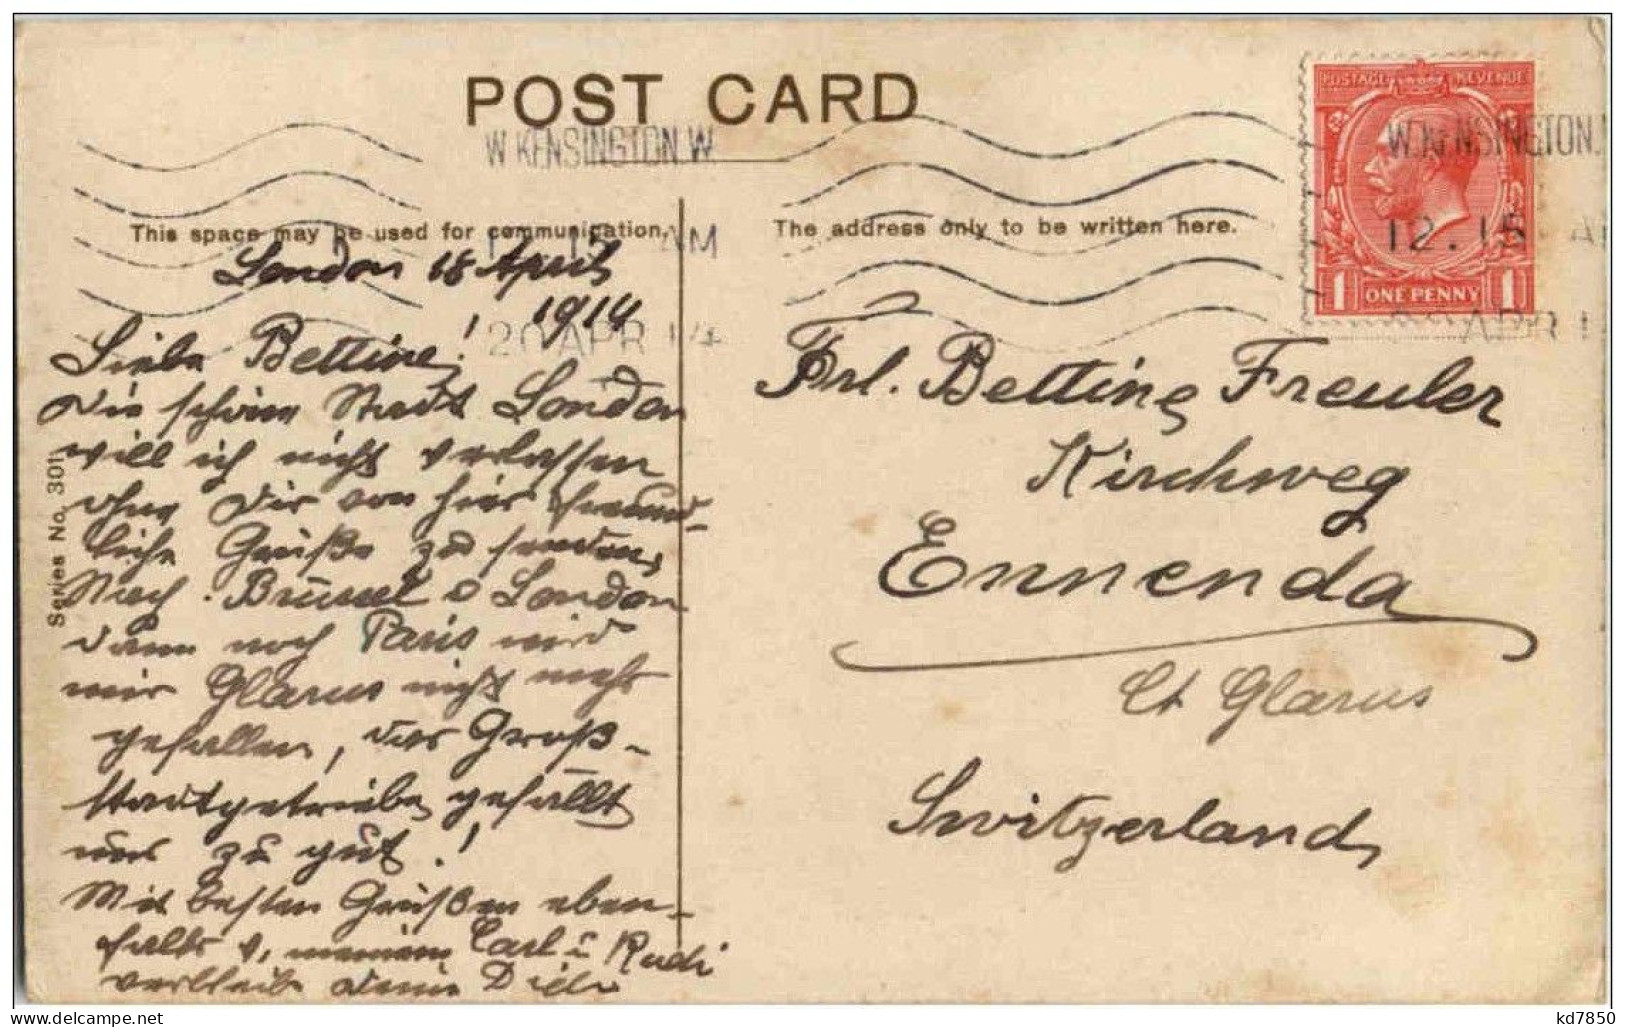 POST CARD
W. KENSINGTON. W.
W. KENSINGTON.
POSTAGE REVENUE
This space may be used for communication.
The address only to be written here.
AM
12.15 A
1 ONE PENNY 1
20 APR 14
APR 1
London 18 April
1914
Liebe Bettine!
Die schöne Stadt London
will ich nicht verlassen
ohne Dir von hier freund-
liche Grüße zu senden,
Nach Brüssel & London
dann noch Paris wird
mir Glarus nicht mehr
gefallen, das Groß-
stadtgetriebe gefällt
uns zu gut!
Mit besten Grüßen eben-
falls v. meinem Carl u Rudi
verbleibe Deine
Series No. 301
Frl. Bettine Freuler
Kirchweg
Ennenda
Ct Glarus
Switzerland
kd7850